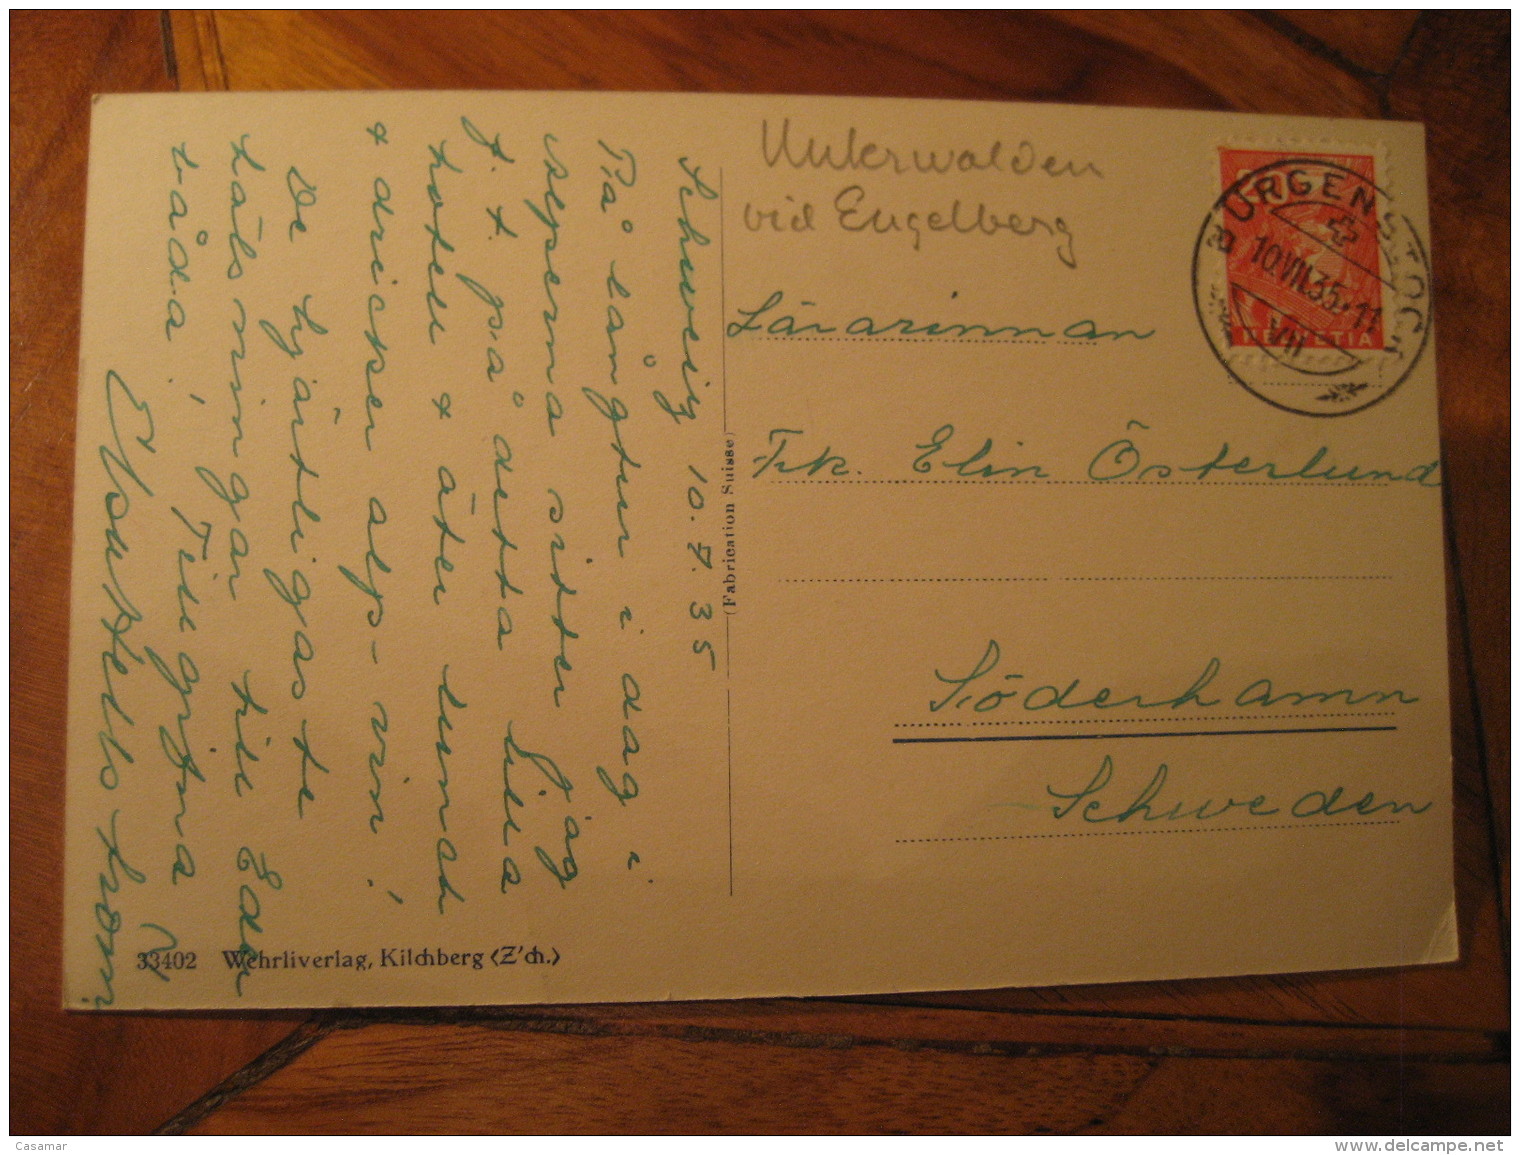 Unterwalden
vid Engelberg
BÜRGENSTOCK
10.VII.35.-11
VII
20
HELVETIA
Lärarinnan
Frk. Elin Österlund
Söderhamn
Schweden
(Fabrication Suisse)
Schweiz 10.7.35
På långtur i dag i
alperna sitter jag
f. t. på detta lilla
hotell & äter lunch
& dricker alp-vin!
De hjärtligaste
hälsningar till Eder
båda! Tillgivna
Hellström
33402 Wehrliverlag, Kilchberg (Z'ch.)
Casamar
www.delcampe.net